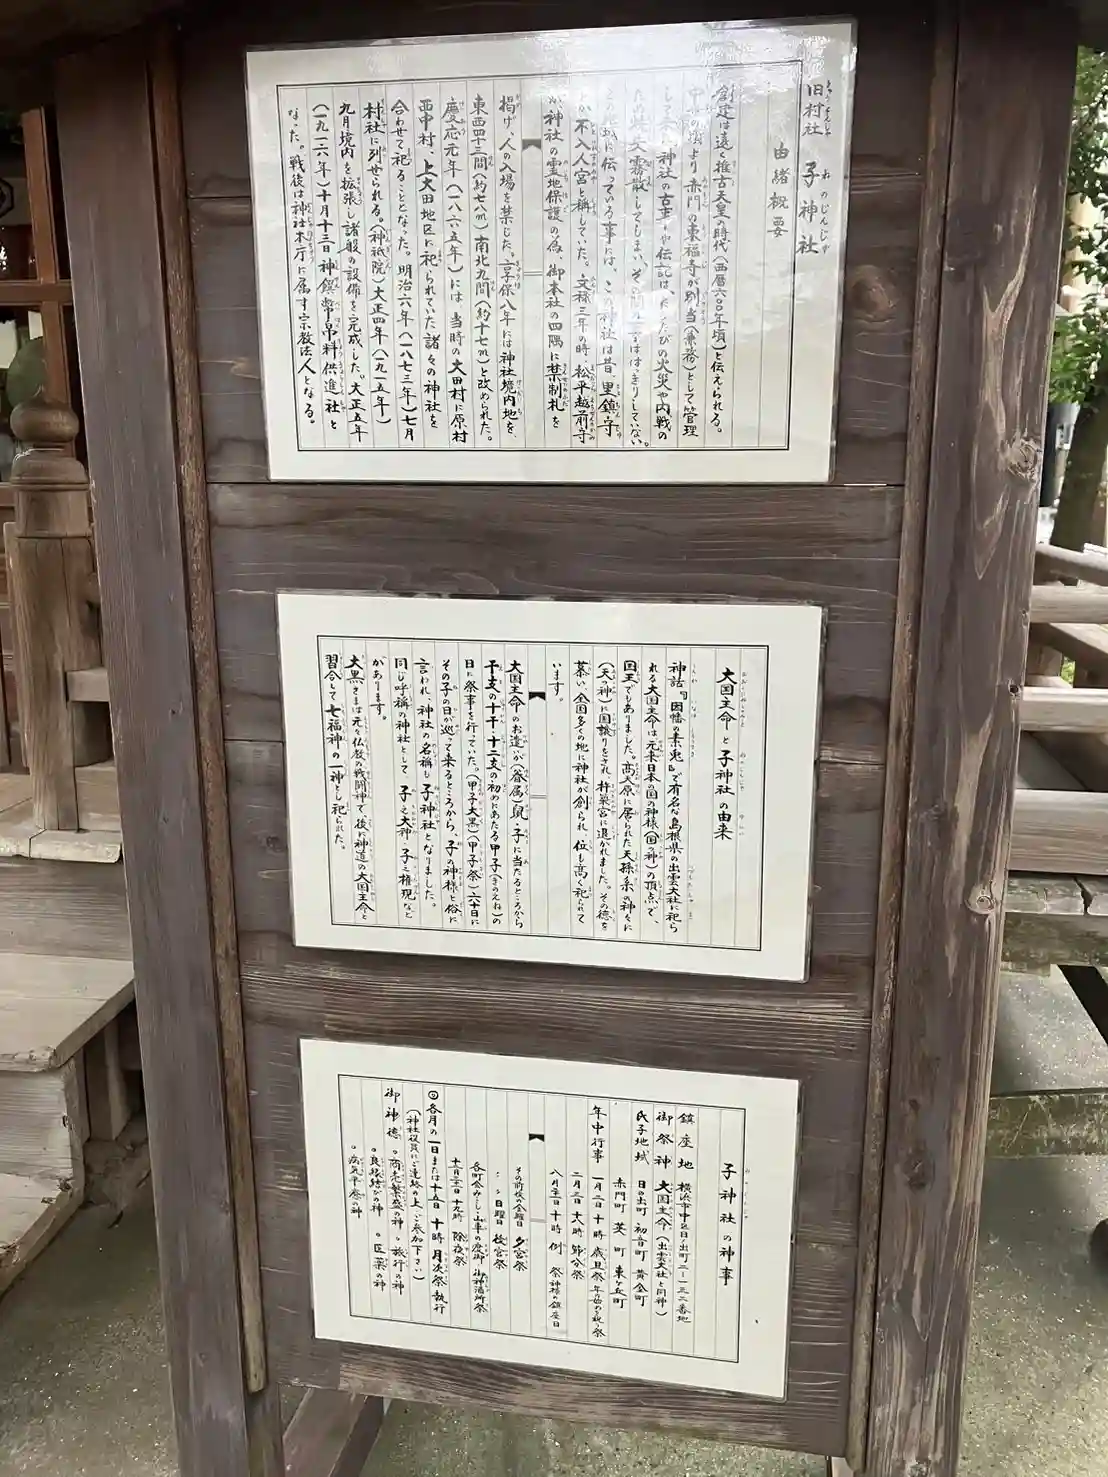 旧村社 子神社
由緒概要
創建は遠く推古天皇の時代(西暦六〇〇年頃)と伝えられる。
中世の頃より赤門の東福寺が別当(兼務)として管理
して来た。神社の古事や伝記は、たびたびの火災や内戦の
ため散文霧散してしまい、その間の事ははっきりしていない。
この地域に伝っている事には、この神社は昔、里鎮守
とか不入人宮と称していた。文禄三年の時、松平越前守
が、神社の霊地保護の為、御本社の四隅に禁制札を
掲げ、人の入場を禁じた。享保八年には神社境内地を、
東西四十三間(約七八m)南北九間(約十七m)と改められた。
慶応元年(一八六五年)には当時の太田村に原村
西中村、上大田地区に祀られていた諸々の神社を
合わせて祀ることとなった。明治六年(一八七三年)七月
村社に列せられる。(神祇院)大正四年(一九一五年)
九月境内を拡張し諸般の設備を完成した。大正五年
(一九一六年)十月十三日神饌幣帛料供進社と
なった。戦後は神社本庁に属す宗教法人となる。
大国主命と子神社の由来
神話『因幡の素兎』で有名な島根県の出雲大社に祀ら
れる大国主命は元来日本の国の神様(国つ神)の頂点で、
国王でもありました。高天原に居られた天孫系の神々に
(天つ神)に国譲りをされ、杵築宮に退かれました。その徳を
慕い、全国多くの地に神社が創られ、位も高く祀られて
います。
大国主命のお遣いが(眷属)鼠・子に当たるところから
干支の十干・十二支の初めにあたる甲子(きのえね)の
日に祭事を行っていた。(甲子大黒)(甲子祭)六十日に
その子の日が巡って来るところから、子の神様と俗に
言われ、神社の名称も子神社となりました。
同じ呼称の神社として、子之大神、子之権現など
があります。
大黒さまは元々仏教の戦闘神で、後に神道の大国主命と
習合して七福神の一神とし祀られた。
子神社の神事
鎮座地 横浜市中区日ノ出町二ー一三二番地
御祭神 大国主命(出雲大社と同神)
氏子地域 日の出町 初音町 黄金町
赤門町 英町 東ヶ丘町
年中行事 一月一日 十時 歳旦祭 年の始めを祝う祭
二月三日 十八時 節分祭
八月二十一日 十時 例祭 神様の鎮座日
その前後の金曜日 夕宮祭
〃 日曜日 後宮祭
各町会みこし・山車の渡御 御神酒所祭
十二月三十一日 十九時 除夜祭
◎各月の一日または十五日 十時 月次祭執行
(神社役員にご連絡の上、ご参加下さい)
御神徳 。商売繁盛の神 。旅行の神
。良縁結びの神 。医薬の神
。病気平癒の神